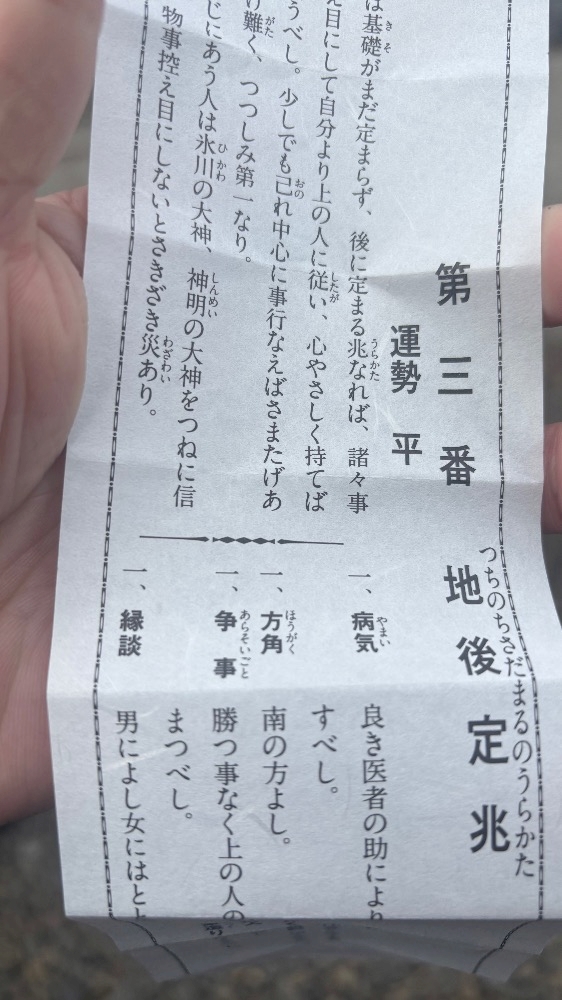 第三番
地後定兆
つちのちさだまるのうらかた
運勢 平
は基礎がまだ定まらず、後に定まる兆なれば、諸々事
え目にして自分より上の人に従い、心やさしく持てば
うべし。少しでも己れ中心に事行なえばさまたげあ
け難く、つつしみ第一なり。
じにあう人は氷川の大神、神明の大神をつねに信
物事控え目にしないとさきざき災あり。
一、病気 良き医者の助により
すべし。
一、方角 南の方よし。
一、争事 勝つ事なく上の人の
まつべし。
一、縁談 男によし女にはとと